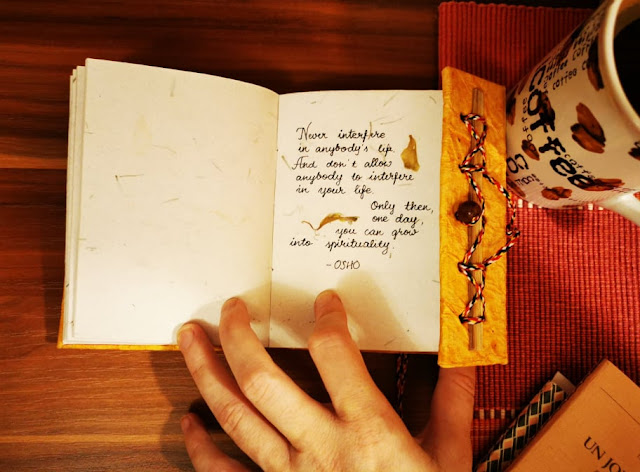 Never interfere
in anybody's life.
And don't allow
anybody to interfere
in your life.
Only then,
one day,
you can grow
into spirituality.
-OSHO
coffee
coffee
Coffee
coffee
UN JO